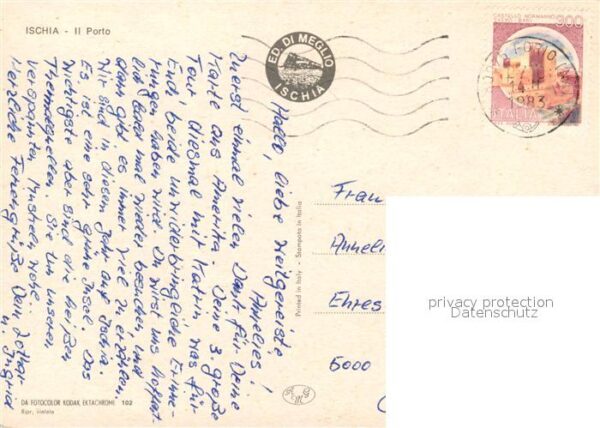 ISCHIA - Il Porto
ED. DI MEGLIO
ISCHIA
CASTELLO NORMANNO
300
ITALIA
14
1983
Hallo, liebe weitgereiste
Annelies!
Zuerst einmal vielen Dank für Deine
Karte aus Amerika. Deine 3. große
Tour, diesmal mit Katrin, was für
Euch beide unwiderbringliche Erinne-
rungen haben wird. Du wirst uns hoffent-
lich bald mal wieder besuchen und
dann gibt es immer viel zu erzählen.
Wir sind in diesem Jahr auf Ischia.
Es ist eine sehr grüne Insel. Das
wichtigste aber sind die heißen
Thermalquellen. Sie tun unseren
verspannten Muskeln wohl.
Herzliche Feriengrüße Dein Lothar
u. Ingrid
Printed in Italy - Stampato in Italia
Frau
Anneli
Ehres
5000
privacy protection
Datenschutz
DA FOTOCOLOR KODAK EKTACHROME 102
Ripr. vietata